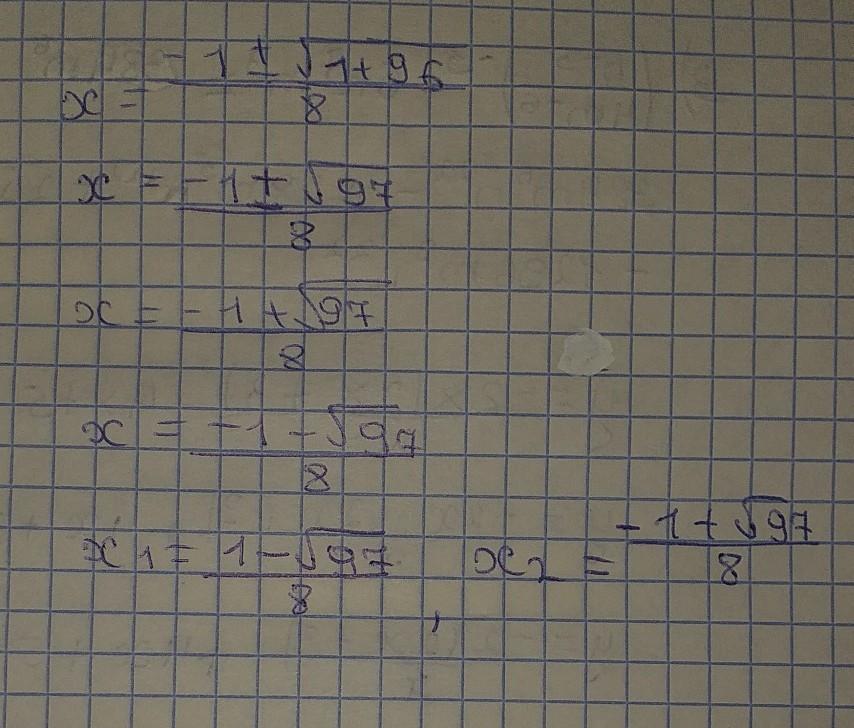 x = (-1 ± √(1+96))/8
x = (-1 ± √97)/8
x = (-1 + √97)/8
x = (-1 - √97)/8
x₁ = (1 - √97)/8 , x₂ = (-1 + √97)/8